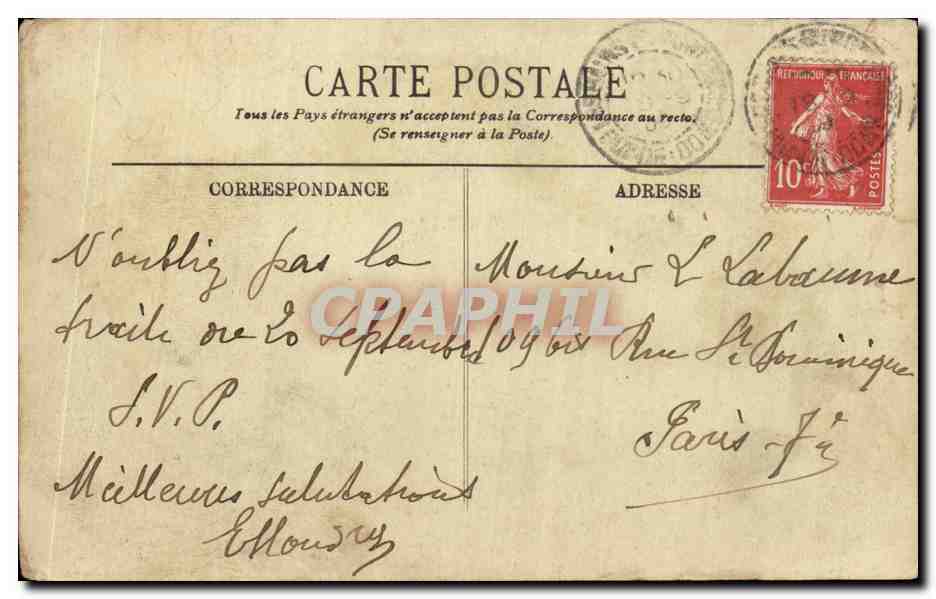 CARTE POSTALE
Tous les Pays étrangers n'acceptent pas la Correspondance au recto.
(Se renseigner à la Poste).
REPUBLIQUE FRANÇAISE
10c
POSTES
CORRESPONDANCE
ADRESSE
N'oubliez pas la
traite de 20 septembre
S.V.P.
Meilleures salutations
Monsieur L Labaume
109 bis Rue St Dominique
Paris - 7e
CPAPHIL